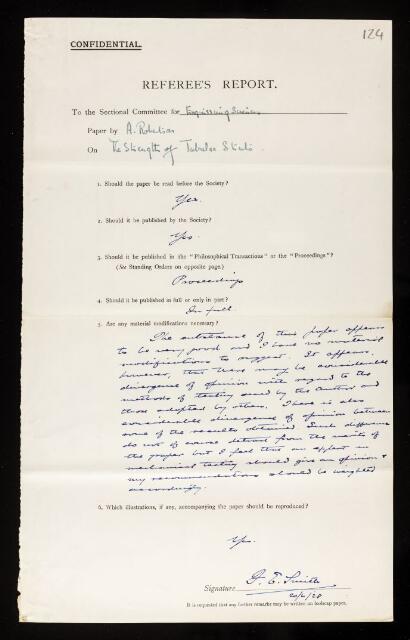 124
CONFIDENTIAL.
REFEREE'S REPORT.
To the Sectional Committee for Engineering Sciences
Paper by A. Robertson
On The Strength of Tubular Struts.
1. Should the paper be read before the Society?
Yes.
2. Should it be published by the Society?
Yes.
3. Should it be published in the "Philosophical Transactions" or the "Proceedings"?
(See Standing Orders on opposite page.)
Proceedings
4. Should it be published in full or only in part?
In full
5. Are any material modifications necessary?
The substance of this paper appears
to be very good and I have no material
modifications to suggest. It appears,
however, that there may be considerable
divergence of opinion with regard to the
methods of testing used by the author and
those adopted by others. There is also
considerable divergence of opinion between
some of the results obtained. Such differences
do not of course detract from the merits of
the paper but I feel that an expert in
mechanical testing should give an opinion &
my recommendations should be weighted
accordingly.
6. Which illustrations, if any, accompanying the paper should be reproduced?
Yes.
Signature F. E. Smith
20/6/28
It is requested that any further remarks may be written on foolscap paper.